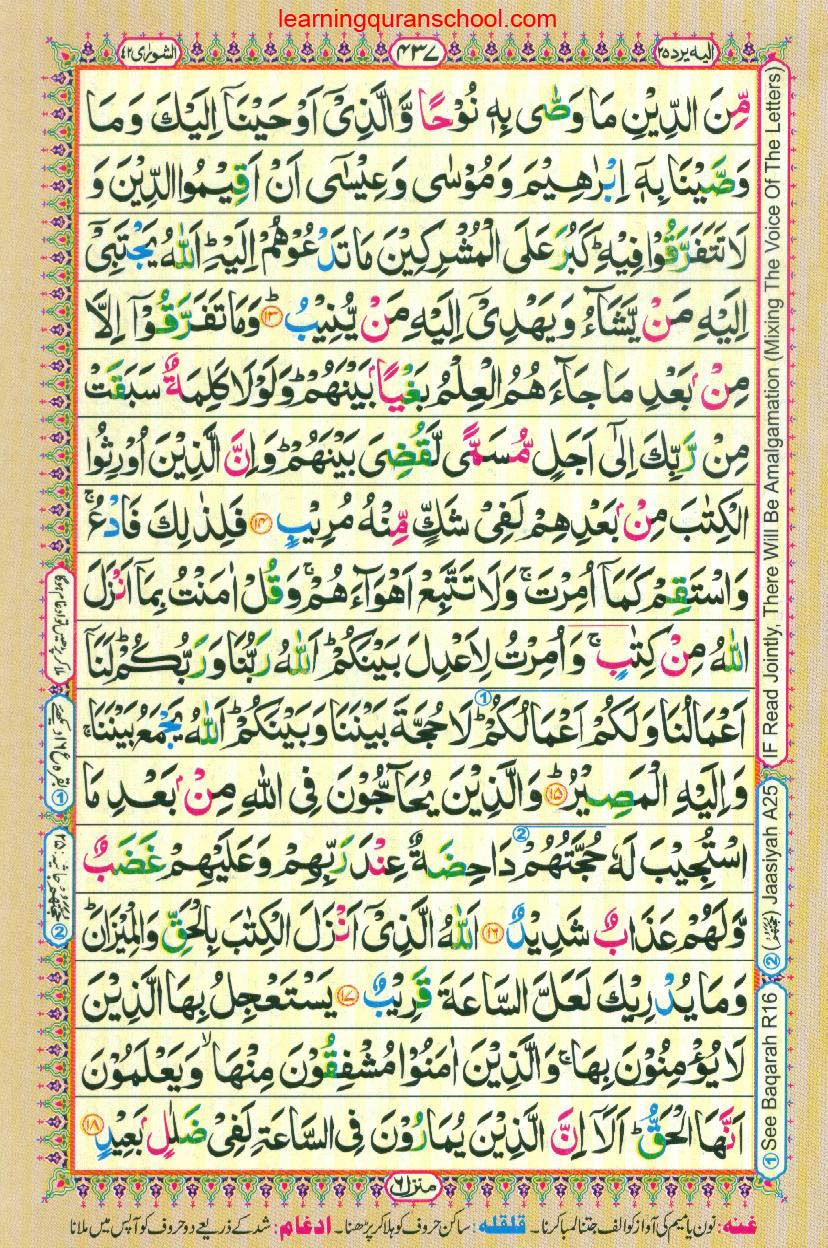 learningquranschool.com
الشورٰی ۴۲
۴۳۷
الیه یرد ۲۵
مِّنَ الدِّیْنِ مَا وَصّٰى بِهٖ نُوْحًا وَّالَّذِیْۤ اَوْحَیْنَاۤ اِلَیْكَ وَمَا
وَصَّیْنَا بِهٖۤ اِبْرٰهِیْمَ وَمُوْسٰى وَعِیْسٰۤى اَنْ اَقِیْمُوا الدِّیْنَ وَ
لَا تَتَفَرَّقُوْا فِیْهِ ؕ كَبُرَ عَلَى الْمُشْرِكِیْنَ مَا تَدْعُوْهُمْ اِلَیْهِ ؕ اَللّٰهُ یَجْتَبِیْۤ
اِلَیْهِ مَنْ یَّشَآءُ وَیَهْدِیْۤ اِلَیْهِ مَنْ یُّنِیْبُ ؕ۱۳ وَمَا تَفَرَّقُوْۤا اِلَّا
مِنْۢ بَعْدِ مَا جَآءَهُمُ الْعِلْمُ بَغْیًۢا بَیْنَهُمْ ؕ وَلَوْلَا كَلِمَةٌ سَبَقَتْ
مِنْ رَّبِّكَ اِلٰۤى اَجَلٍ مُّسَمًّى لَّقُضِیَ بَیْنَهُمْ ؕ وَاِنَّ الَّذِیْنَ اُوْرِثُوا
الْكِتٰبَ مِنْۢ بَعْدِهِمْ لَفِیْ شَكٍّ مِّنْهُ مُرِیْبٍ ۱۴ فَلِذٰلِكَ فَادْعُ ۚ
وَاسْتَقِمْ كَمَاۤ اُمِرْتَ ۚ وَلَا تَتَّبِعْ اَهْوَآءَهُمْ ۚ وَقُلْ اٰمَنْتُ بِمَاۤ اَنْزَلَ
اللّٰهُ مِنْ كِتٰبٍ ۚ وَاُمِرْتُ لِاَعْدِلَ بَیْنَكُمْ ؕ اَللّٰهُ رَبُّنَا وَرَبُّكُمْ ؕ لَنَاۤ
اَعْمَالُنَا وَلَكُمْ اَعْمَالُكُمْ ؕ ① لَا حُجَّةَ بَیْنَنَا وَبَیْنَكُمْ ؕ اَللّٰهُ یَجْمَعُ بَیْنَنَا ۚ
وَاِلَیْهِ الْمَصِیْرُ ؕ۱۵ وَالَّذِیْنَ یُحَآجُّوْنَ فِی اللّٰهِ مِنْۢ بَعْدِ مَا
اسْتُجِیْبَ لَهٗ حُجَّتُهُمْ ② دَاحِضَةٌ عِنْدَ رَبِّهِمْ وَعَلَیْهِمْ غَضَبٌ
وَّلَهُمْ عَذَابٌ شَدِیْدٌ ۱۶ اَللّٰهُ الَّذِیْۤ اَنْزَلَ الْكِتٰبَ بِالْحَقِّ وَالْمِیْزَانَ ؕ
وَمَا یُدْرِیْكَ لَعَلَّ السَّاعَةَ قَرِیْبٌ ۱۷ یَسْتَعْجِلُ بِهَا الَّذِیْنَ
لَا یُؤْمِنُوْنَ بِهَا ۚ وَالَّذِیْنَ اٰمَنُوْا مُشْفِقُوْنَ مِنْهَا ۙ وَیَعْلَمُوْنَ
اَنَّهَا الْحَقُّ ؕ اَلَاۤ اِنَّ الَّذِیْنَ یُمَارُوْنَ فِی السَّاعَةِ لَفِیْ ضَلٰلٍۭ بَعِیْدٍ ۱۸
IF Read Jointly, There Will Be Amalgamation (Mixing The Voice Of The Letters)
② Jaasiyah A25
① See Baqarah R16
منزل ۶
غنه: نون یا میم کی آواز کو الف جتنا لمبا کرنا۔ قلقله: ساکن حروف کو ہلا کر پڑھنا۔ ادغام: شد کے ذریعے دو حروف کو آپس میں ملانا